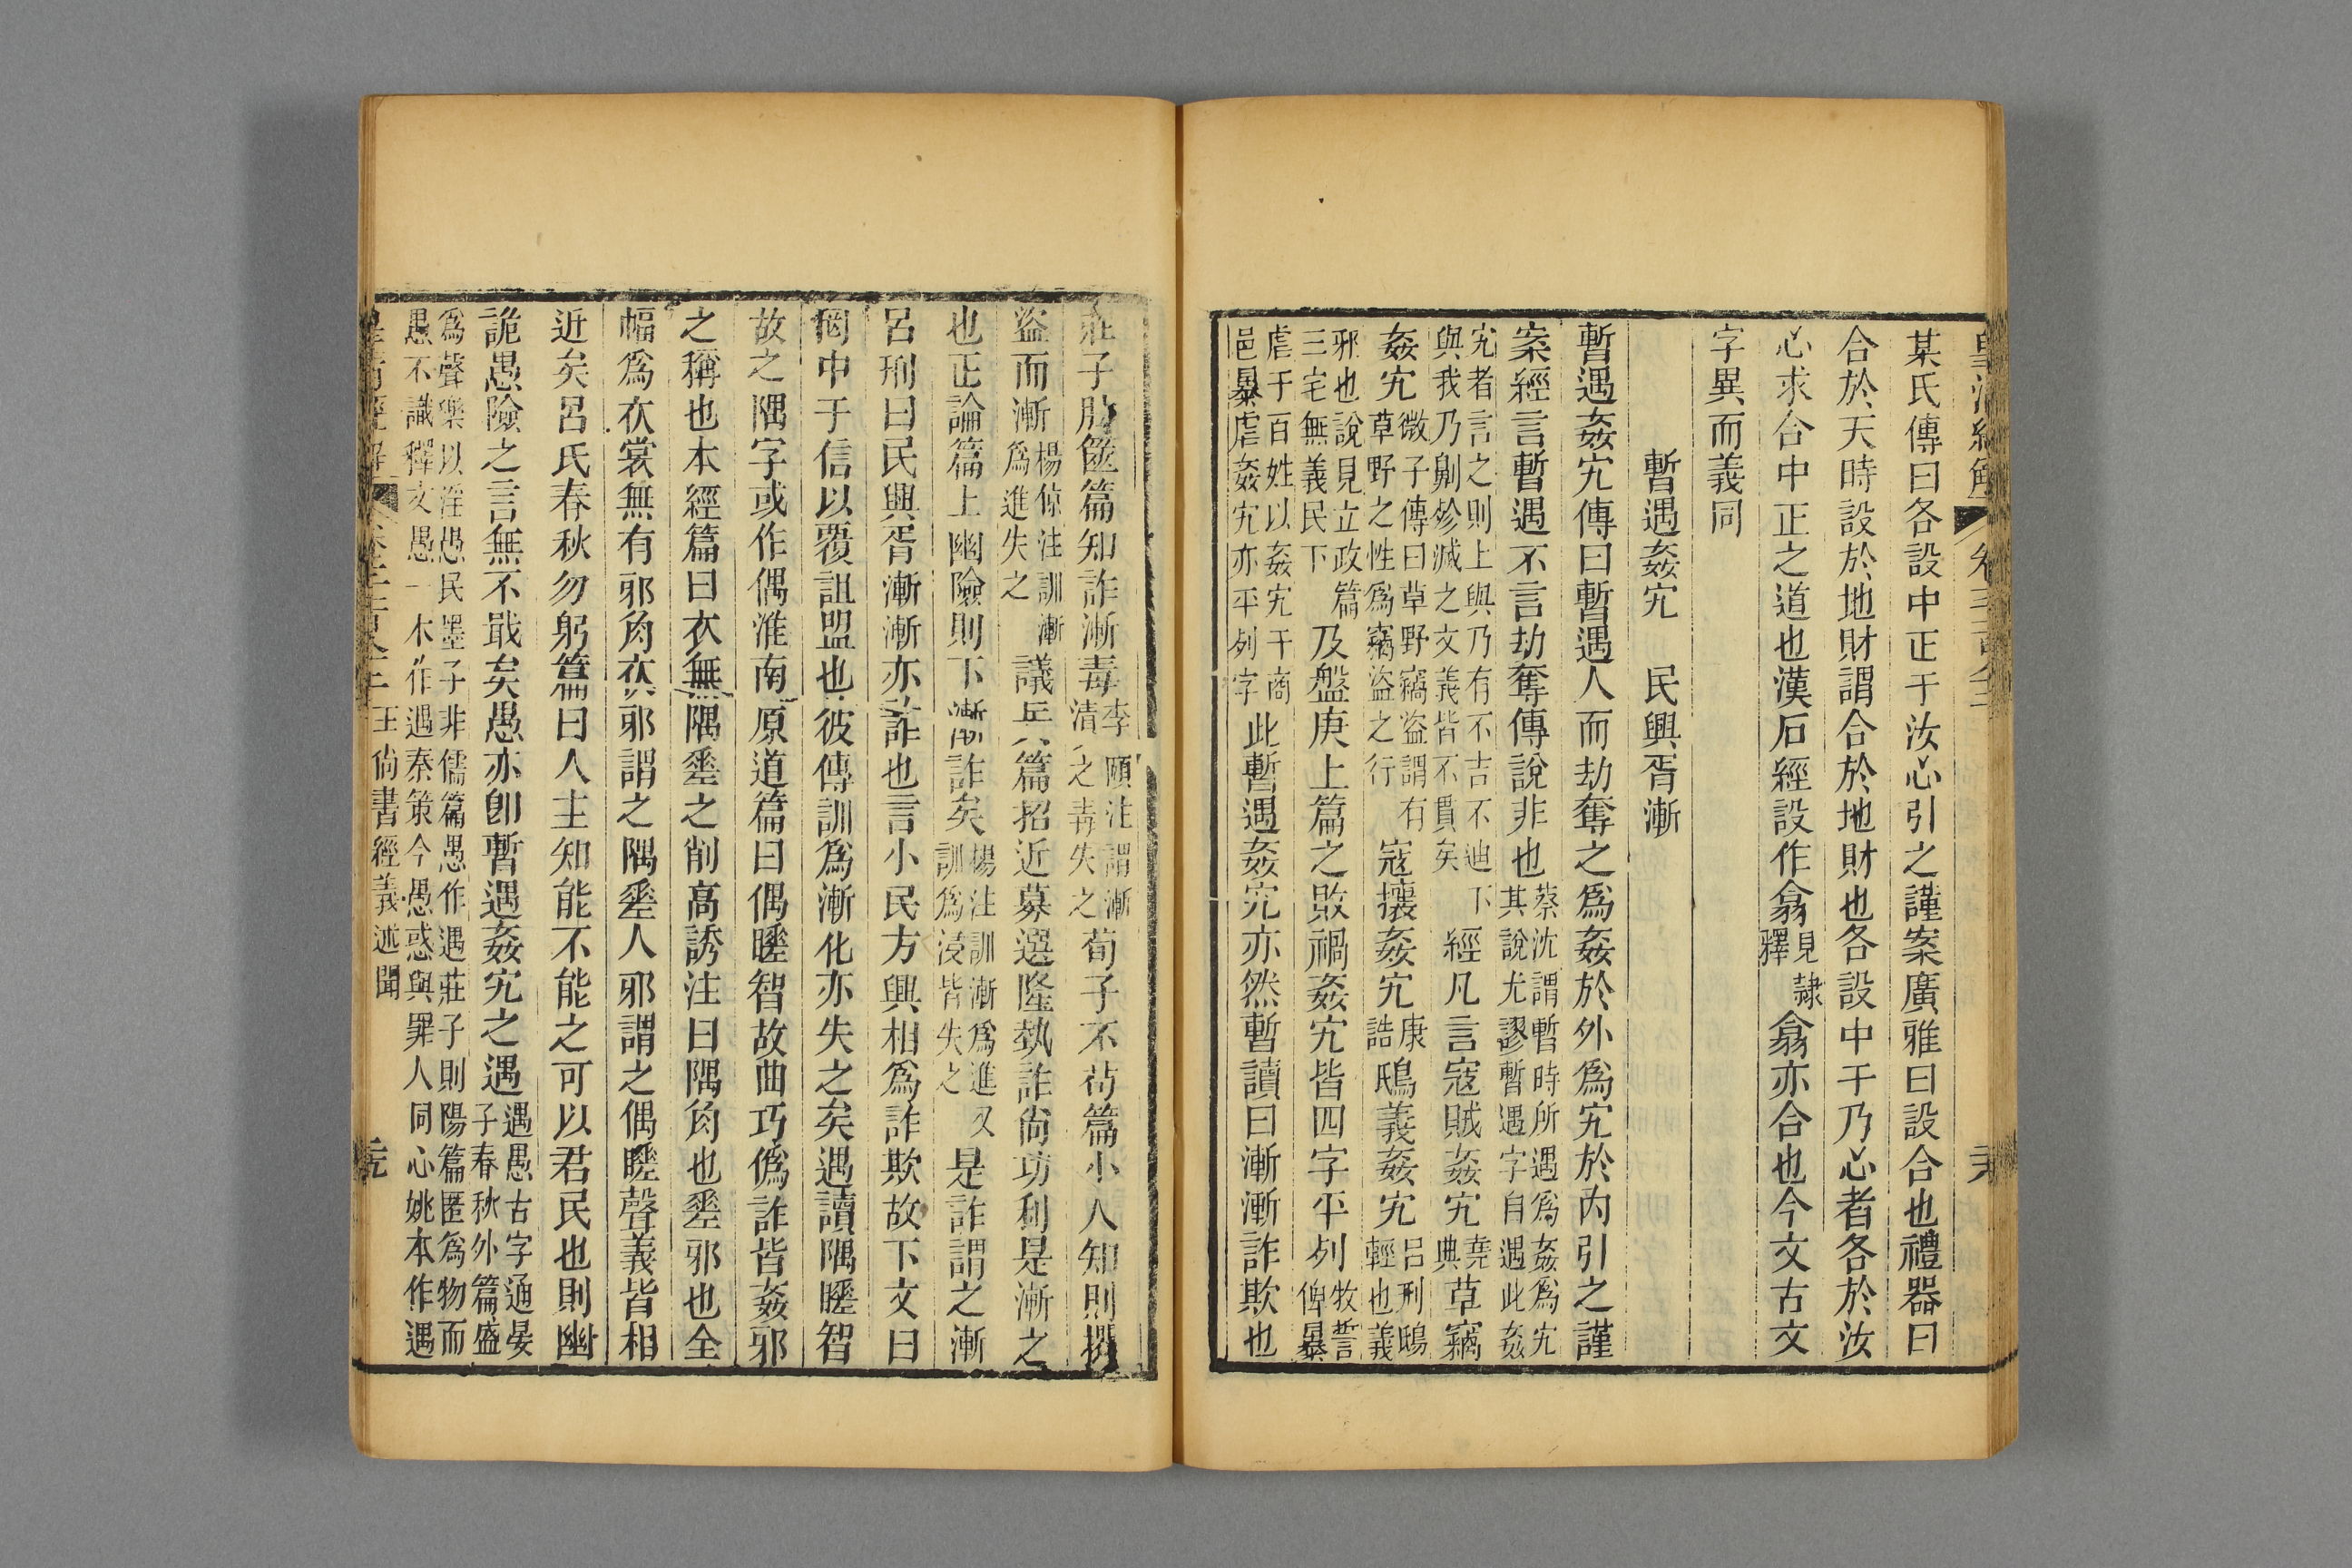 某氏傳曰各設中正于汝心引之謹案廣雅曰設合也禮器曰
合於天時設於地財謂合於地財也各設中于乃心者各於汝
心求合中正之道也漢石經設作翕見隸釋翕亦合也今文古文
字異而義同
暫遇姦宄 民興胥漸
暫遇姦宄傳曰暫遇人而劫奪之爲姦於外爲宄於內引之謹
案經言暫遇不言劫奪傳說非也蔡沈謂暫時所遇爲姦爲宄其說尤謬暫遇字自遇此姦
宄者言之則上與乃有不吉不迪下與我乃劓殄滅之文義皆不貫矣經凡言寇賊姦宄堯典草竊
姦宄微子傳曰草野竊盜謂有草野之性爲竊盜之行寇攘姦宄康誥鴟義姦宄呂刑鴟輕也義
邪也說見立政篇三宅無義民下及盤庚上篇之敗禍姦宄皆四字平列牧誓俾暴
虐于百姓以姦宄于商邑暴虐姦宄亦平列字此暫遇姦宄亦然暫讀曰漸漸詐欺也
莊子胠篋篇知詐漸毒李頤注謂漸清之毒失之荀子不苟篇小人知則攫
盜而漸楊倞注訓漸爲進失之議兵篇招近募選隆埶詐尙功利是漸之
也正論篇上幽險則下漸詐矣楊注訓漸爲進又訓爲浸皆失之是詐謂之漸
呂刑曰民興胥漸漸亦詐也言小民方興相爲詐欺故下文曰
罔中于信以覆詛盟也彼傳訓爲漸化亦失之矣遇讀隅䁤智
故之隅字或作偶淮南原道篇曰偶䁤智故曲巧僞詐皆姦邪
之稱也本經篇曰衣無隅㚏之削高誘注曰隅角也㚏邪也全
幅爲衣裳無有邪角衣邪謂之隅㚏人邪謂之偶䁤聲義皆相
近矣呂氏春秋勿躬篇曰人主知能不能之可以君民也則幽
詭愚險之言無不戢矣愚亦卽暫遇姦宄之遇遇愚古字通晏子春秋外篇盛
爲聲樂以淫愚民墨子非儒篇愚作遇莊子則陽篇匿爲物而愚不識釋文愚一木作遇秦策今愚惑與罪人同心姚本作遇
王尙書經義述聞